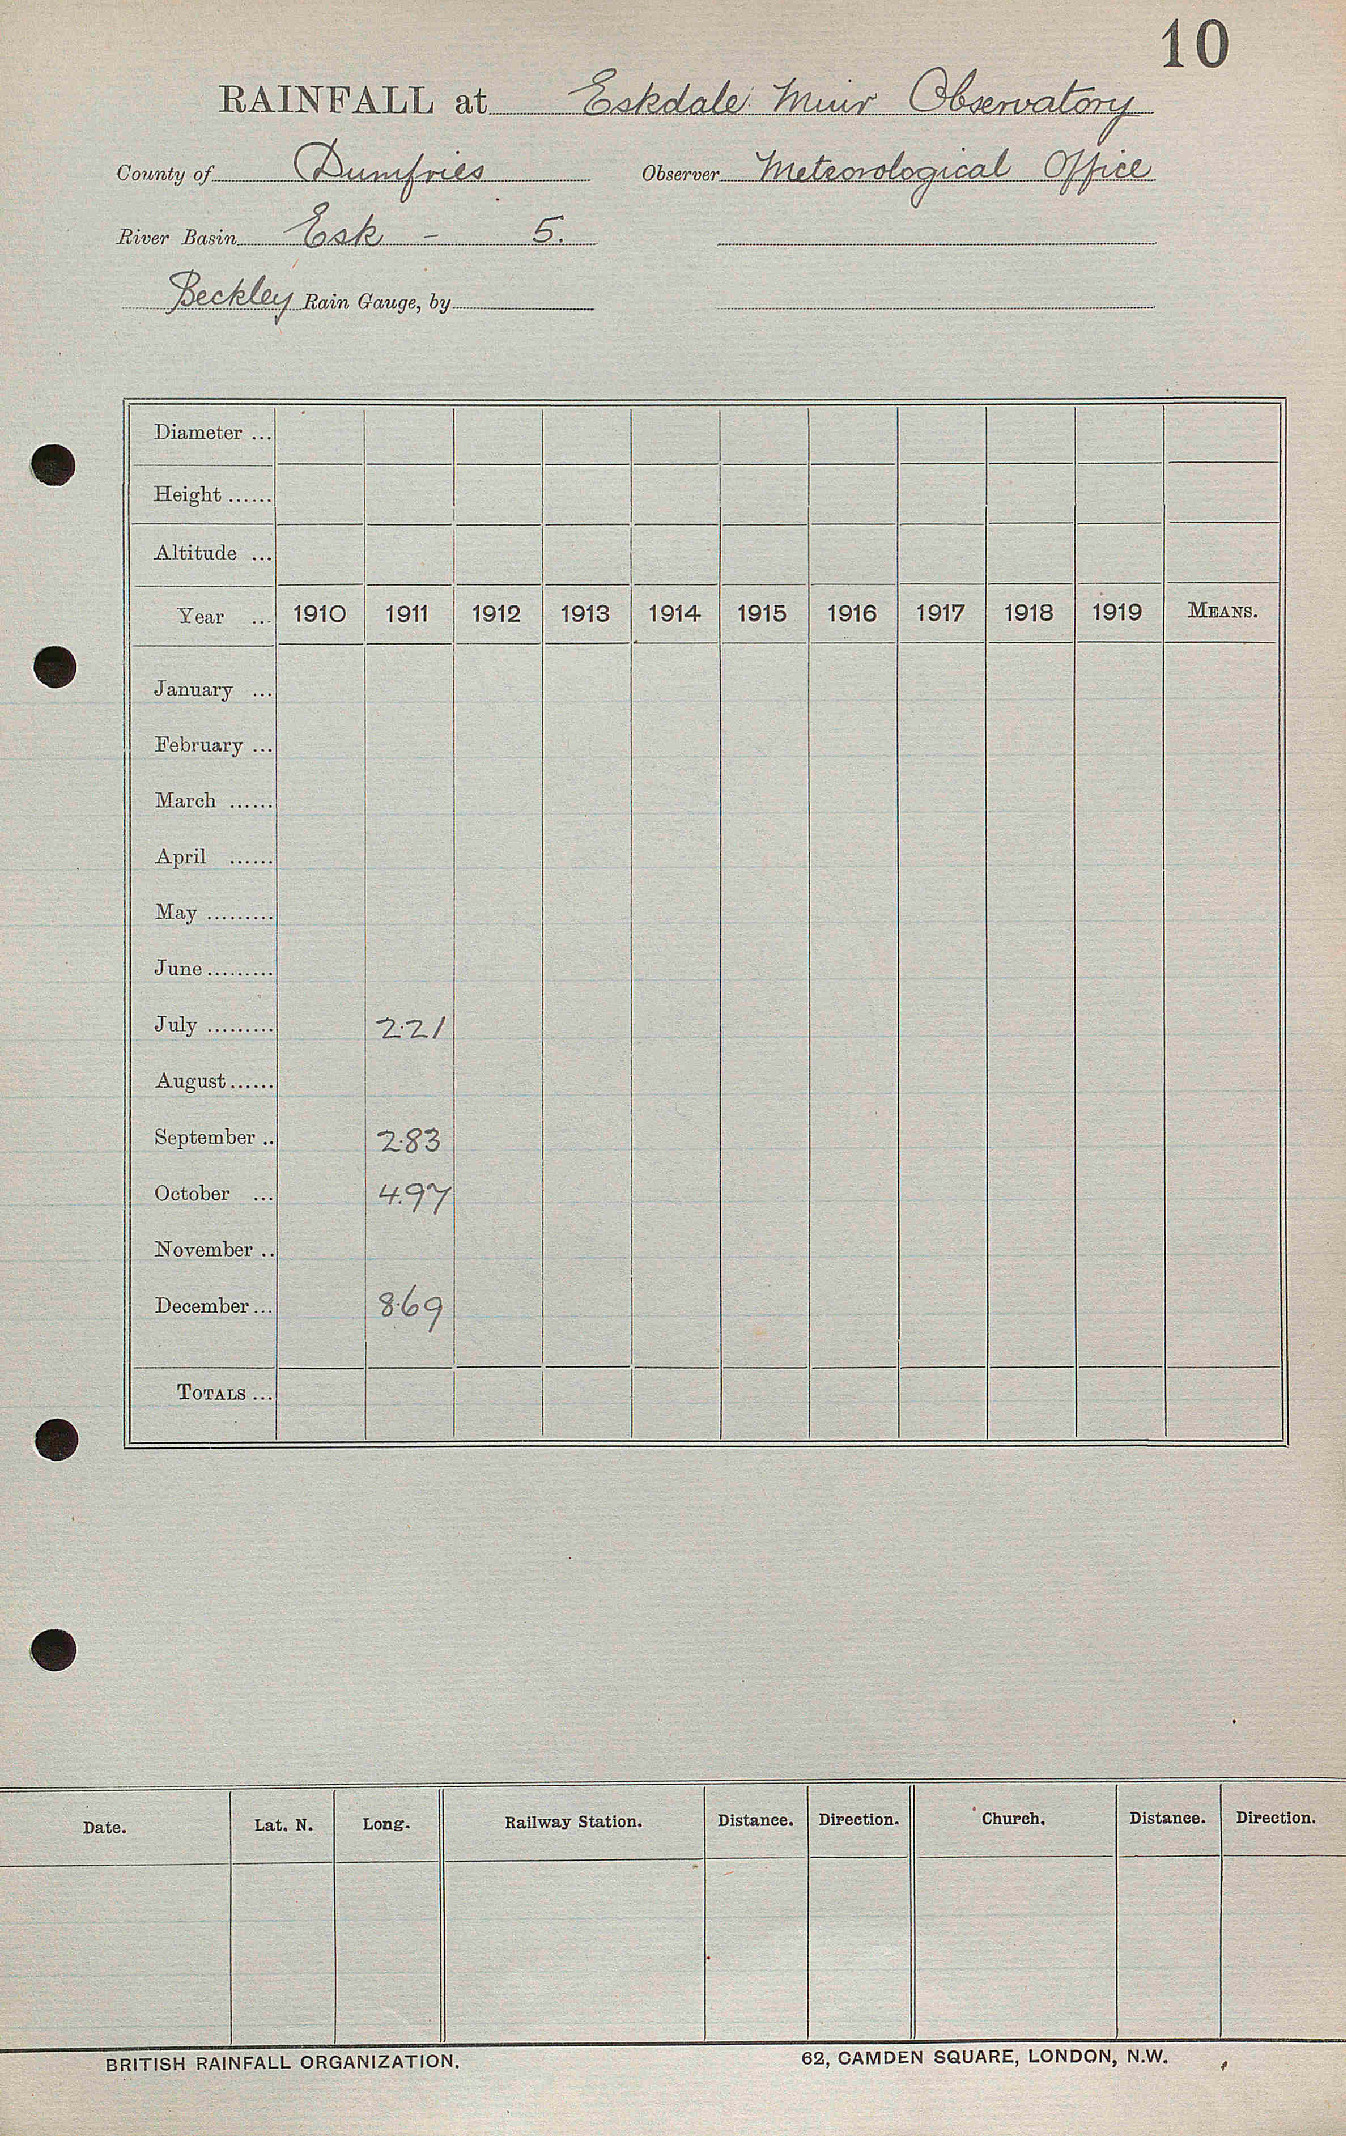 10
RAINFALL at Eskdale Muir Observatory
County of Dumfries Observer Meteorological Office
River Basin Esk - 5.
Beckley Rain Gauge, by
Diameter ...
Height ......
Altitude ...
Year ... 1910 1911 1912 1913 1914 1915 1916 1917 1918 1919 MEANS.
January ...
February ...
March ......
April ......
May .........
June .........
July ......... 2.21
August ......
September .. 2.83
October ... 4.97
November ..
December ... 8.69
TOTALS ...
Date. Lat. N. Long. Railway Station. Distance. Direction. Church. Distance. Direction.
BRITISH RAINFALL ORGANIZATION. 62, CAMDEN SQUARE, LONDON, N.W.